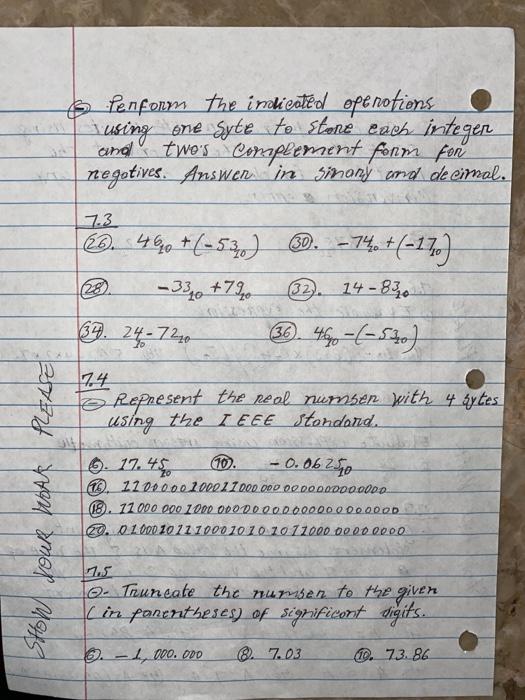 ⊖ Perform the indicated operations
using one byte to store each integer
and two's complement form for
negatives. Answer in binary and decimal.
7.3
(26). 46₁₀ + (-53₁₀) (30). -74₁₀ + (-17₁₀)
(28) -33₁₀ + 79₁₀ (32). 14 - 83₁₀
(34). 24₁₀ - 72₁₀ (36). 46₁₀ - (-53₁₀)
7.4
⊖ Represent the real number with 4 bytes
using the IEEE standard.
(6). 17.45₁₀ (10). -0.0625₁₀
(16). 11000001000110000000000000000000
(18). 11000000100000000000000000000000
(20). 01000101110001010101100000000000
7.5
⊖- Truncate the number to the given
(in parentheses) of significant digits.
(6). -1,000.000 (8). 7.03 (10). 73.86
SHOW YOUR WORK PLEASE